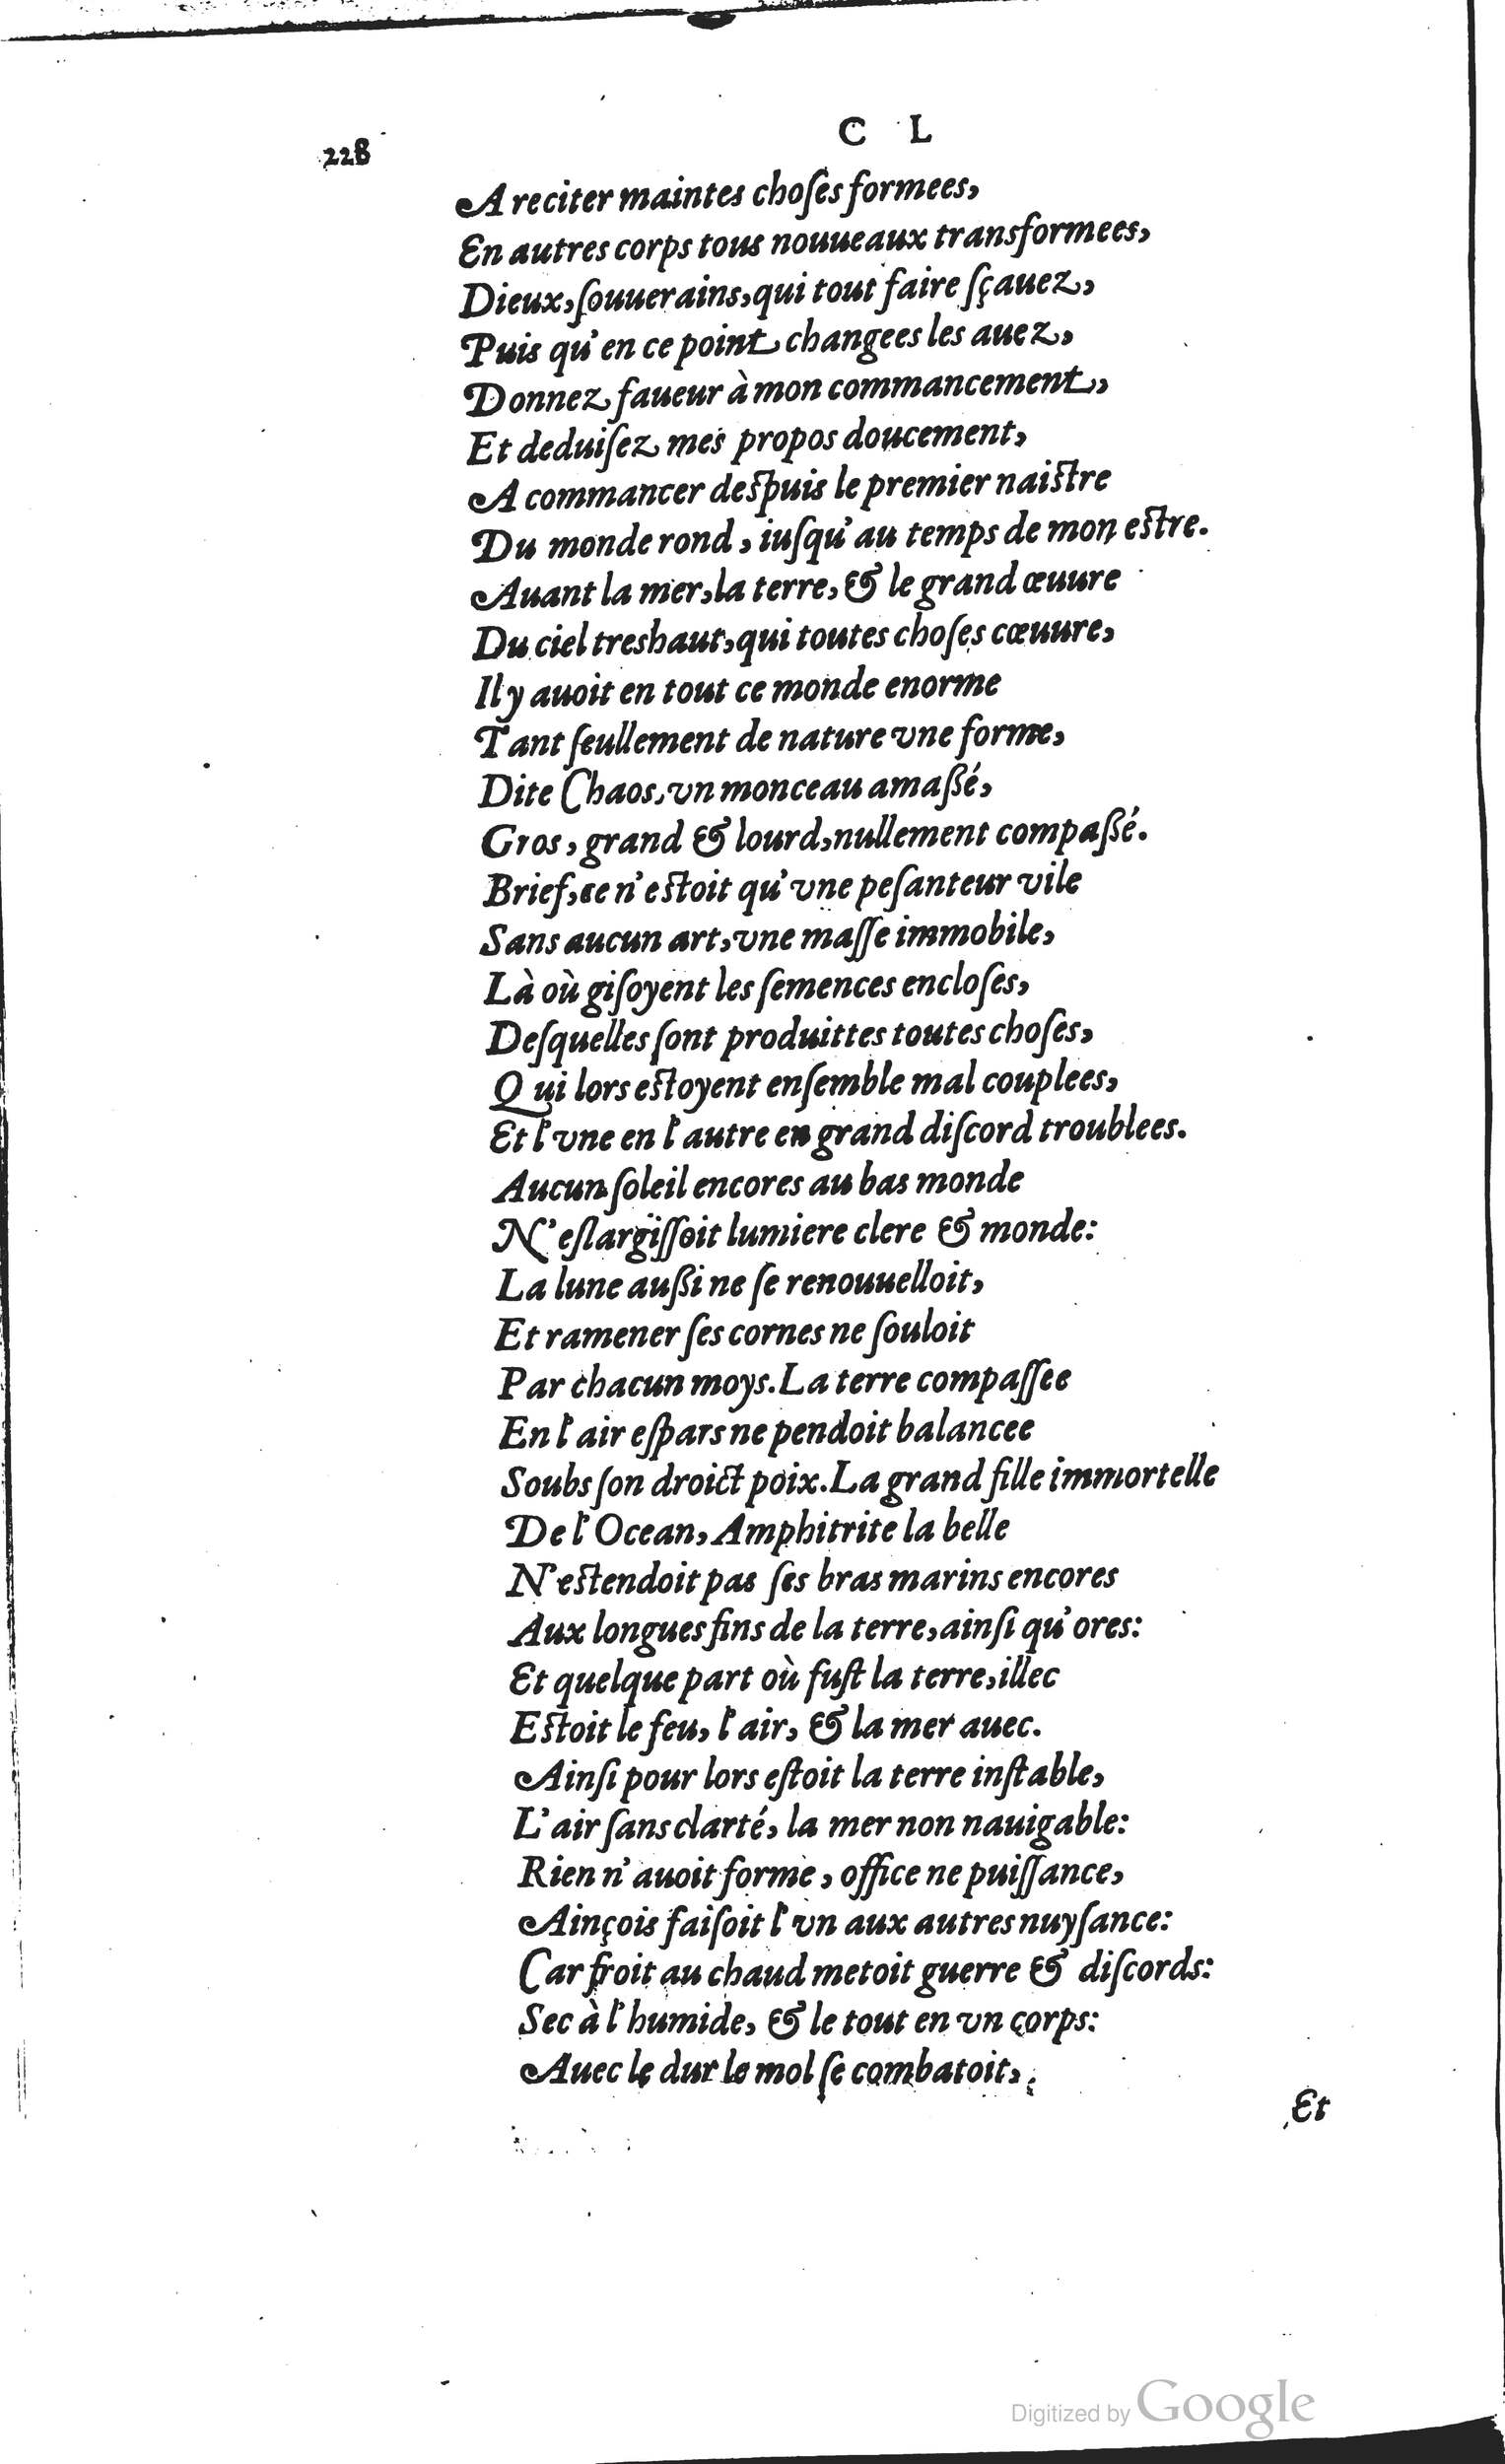 228
C L
A reciter maintes choſes formees,
En autres corps tous nouueaux transformees,
Dieux, ſouuerains, qui tout faire ſçauez,
Puis qu'en ce point changees les auez,
Donnez faueur à mon commancement,
Et deduiſez mes propos doucement,
A commancer deſpuis le premier naiſtre
Du monde rond, iuſqu'au temps de mon eſtre.
Auant la mer, la terre, & le grand œuure
Du ciel treshaut, qui toutes choſes cœuure,
Il y auoit en tout ce monde enorme
Tant ſeullement de nature vne forme,
Dite Chaos, vn monceau amaßé,
Gros, grand & lourd, nullement compaßé.
Brief, ce n'eſtoit qu'vne peſanteur vile
Sans aucun art, vne maſſe immobile,
Là où giſoyent les ſemences encloſes,
Deſquelles ſont produittes toutes choſes,
Qui lors eſtoyent enſemble mal couplees,
Et l'vne en l'autre en grand diſcord troublees.
Aucun ſoleil encores au bas monde
N'eſlargiſſoit lumiere clere & monde:
La lune außi ne ſe renouuelloit,
Et ramener ſes cornes ne ſouloit
Par chacun moys. La terre compaſſee
En l'air eſpars ne pendoit balancee
Soubs ſon droict poix. La grand fille immortelle
De l'Ocean, Amphitrite la belle
N'eſtendoit pas ſes bras marins encores
Aux longues fins de la terre, ainſi qu'ores:
Et quelque part où fuſt la terre, illec
Eſtoit le feu, l'air, & la mer auec.
Ainſi pour lors eſtoit la terre inſtable,
L'air ſans clarté, la mer non nauigable:
Rien n'auoit forme, office ne puiſſance,
Ainçois faiſoit l'vn aux autres nuyſance:
Car froit au chaud metoit guerre & diſcords:
Sec à l'humide, & le tout en vn corps:
Auec le dur le mol ſe combatoit,
Et
Digitized by Google